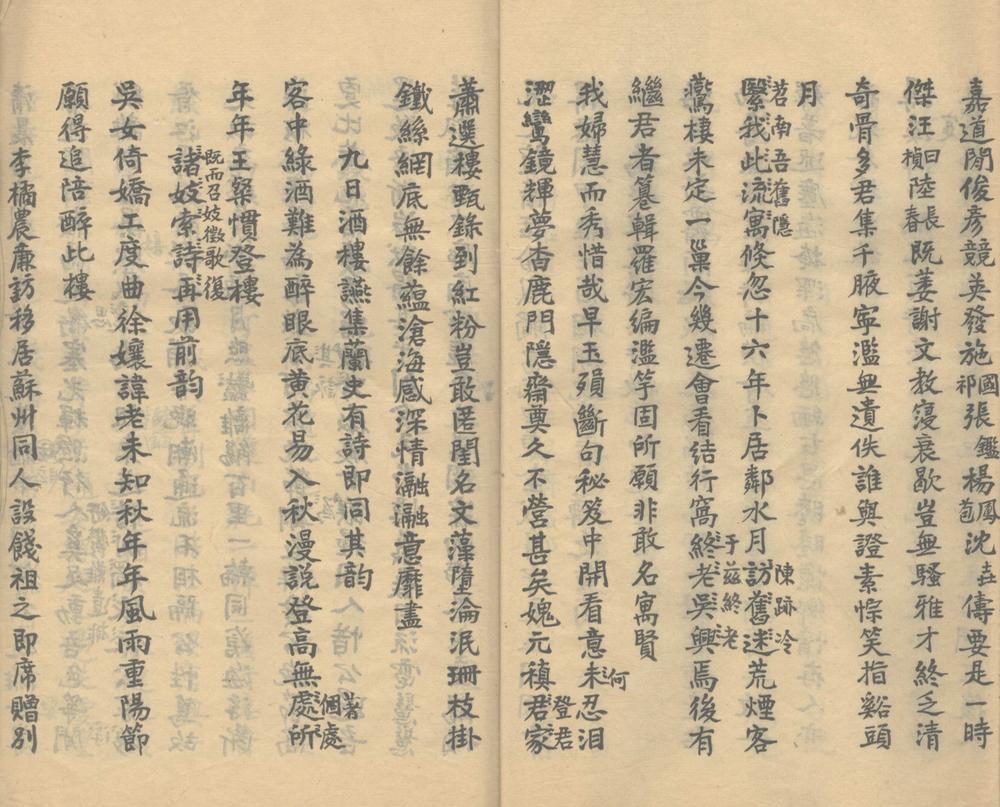 嘉道間俊彥競英發施國祁張鑑楊鳳苞沈垚傳要是一時
傑汪曰楨陸長春既萎謝文教寖衰歇豈無騷雅才終乏清
奇骨多君集千腋寧濫無遺佚誰與證素悰笑指谿頭
月
苕南吾舊隱
繫我此流寓倏忽十六年卜居鄰水月訪舊迷荒煙客
陳跡冷
鷰棲未定一巢今幾遷會看結行窩終老吳興焉後有
于茲終老
繼君者篹輯羅宏編濫竽固所願非敢名寓賢
我婦慧而秀惜哉早玉殞斷句秘笈中開看意未忍淚
何
澀鸞鏡輝夢杳鹿門隱齋奠久不營甚矣媿元稹君家
登君
蕭選樓甄錄到紅粉豈敢匿閨名文藻墮淪泯珊枝掛
鐵絲網底無餘蘊滄海感深情瀜瀜意靡盡
九日酒樓讌集蘭史有詩即同其韵
客中綠酒難為醉眼底黃花易入秋漫說登高無處所
著個處
年年王粲慣登樓
既而召妓徵歌復
諸妓索詩再用前韵
吳女倚嬌工度曲徐孃諱老未知秋年年風雨重陽節
願得追陪醉此樓
李橘農廉訪移居蘇州同人設餞祖之即席贈別